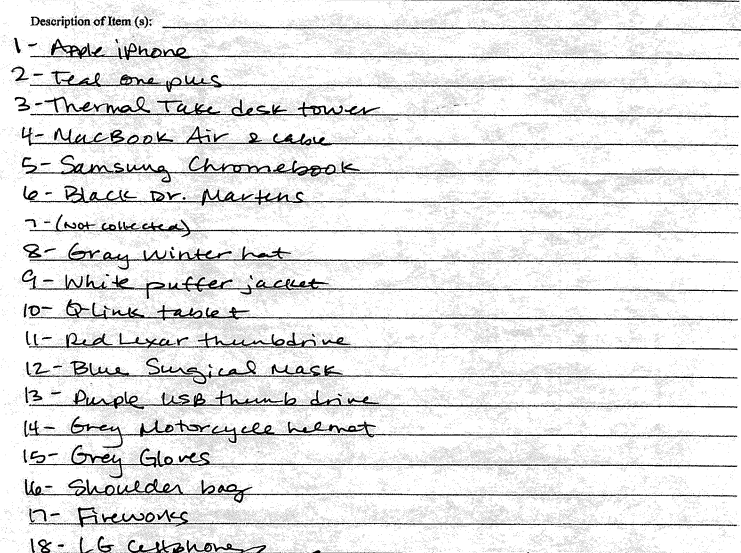 Description of Item (s):
1- Apple iPhone
2- Teal one plus
3- Thermal Take desk tower
4- MacBook Air & cable
5- Samsung Chromebook
6- Black Dr. Martens
7- (Not collected)
8- Gray Winter hat
9- White puffer jacket
10- Q-Link tablet
11- Red Lexar thumbdrive
12- Blue Surgical Mask
13- Purple USB thumb drive
14- Grey Motorcycle helmet
15- Grey Gloves
16- Shoulder bag
17- Fireworks
18- LG Cellphones